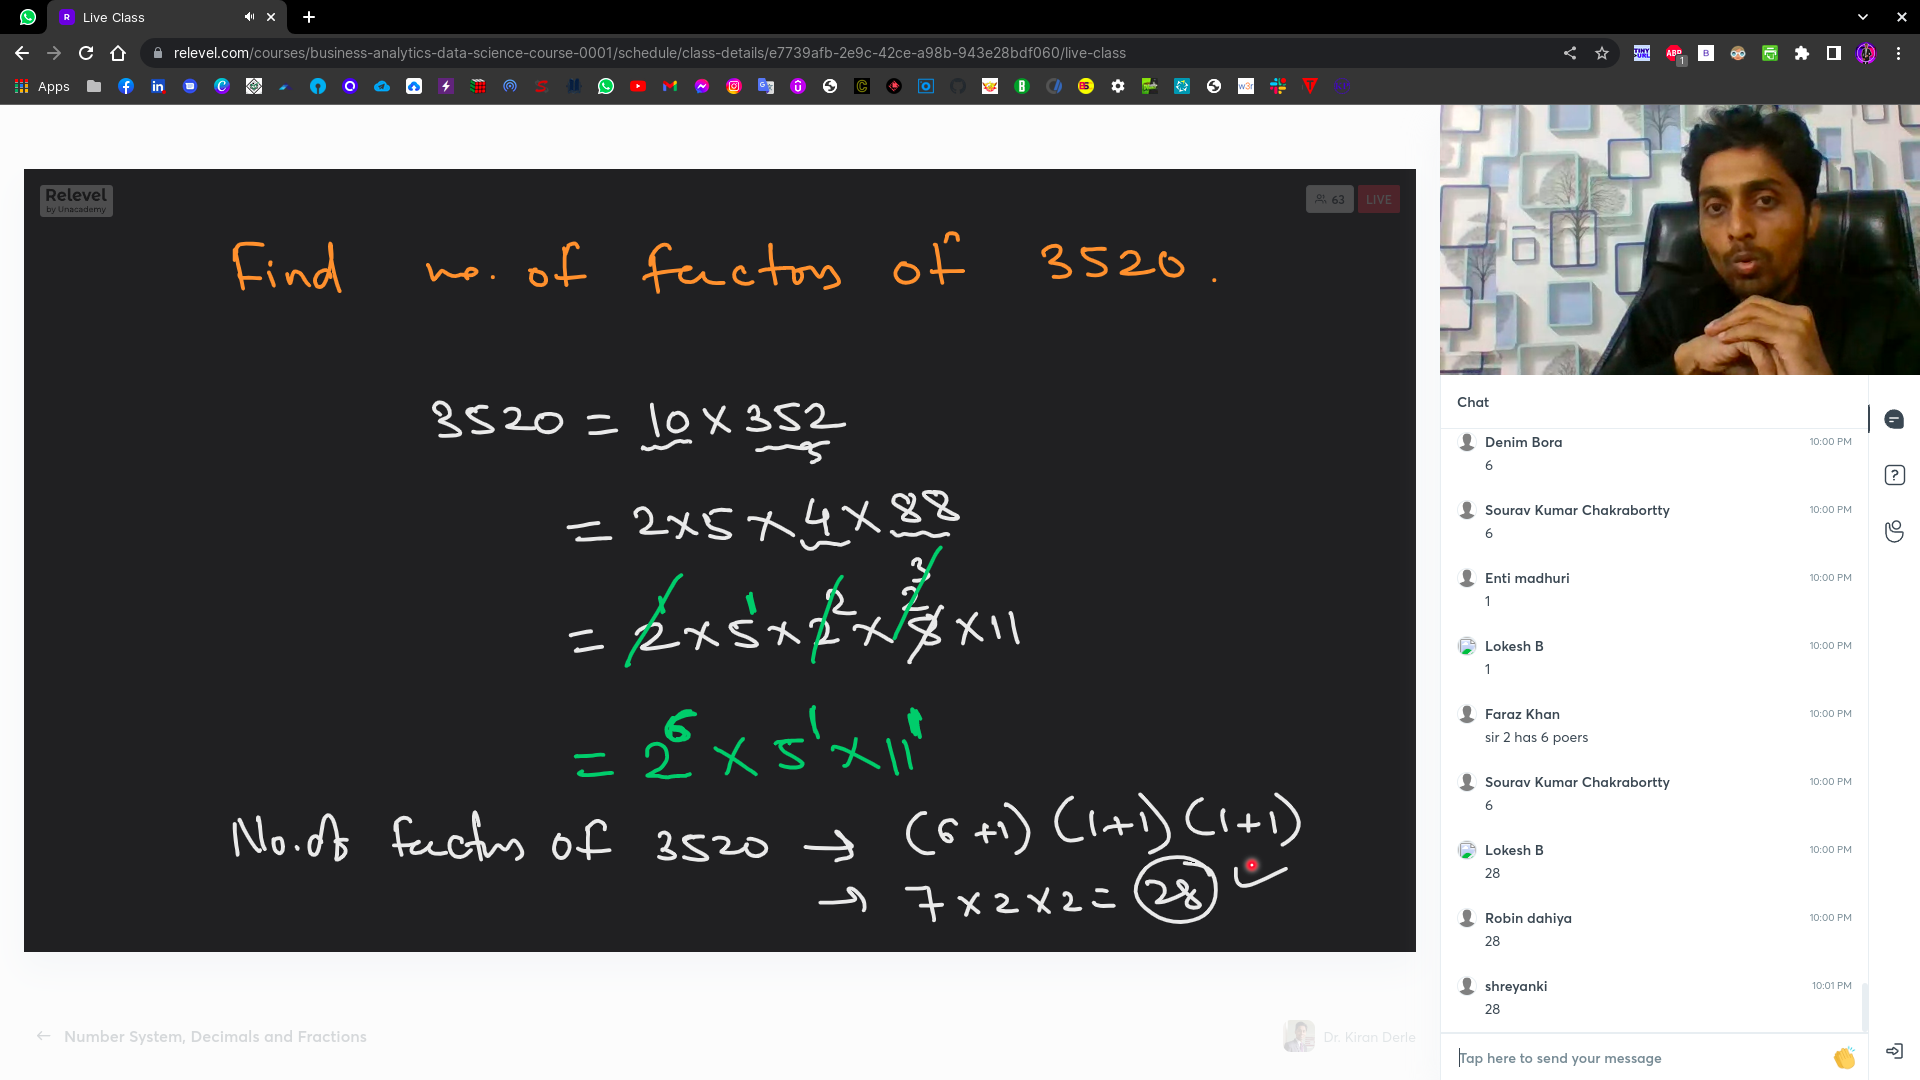 Live Class
relevel.com/courses/business-analytics-data-science-course-0001/schedule/class-details/e7739afb-2e9c-42ce-a98b-943e28bdf060/live-class
Apps
Relevel
by Unacademy
63
LIVE
Find no. of factors of 3520.
3520 = 10 × 352
= 2×5 × 4 × 88
= 2¹ × 5¹ × 2² × 8 2³ × 11
= 2⁶ × 5¹ × 11¹
No. of factors of 3520 → (6+1) (1+1) (1+1)
→ 7 × 2 × 2 = 28
Number System, Decimals and Fractions
Dr. Kiran Derle
Chat
Denim Bora 10:00 PM
6
Sourav Kumar Chakrabortty 10:00 PM
6
Enti madhuri 10:00 PM
1
Lokesh B 10:00 PM
1
Faraz Khan 10:00 PM
sir 2 has 6 poers
Sourav Kumar Chakrabortty 10:00 PM
6
Lokesh B 10:00 PM
28
Robin dahiya 10:00 PM
28
shreyanki 10:01 PM
28
Tap here to send your message